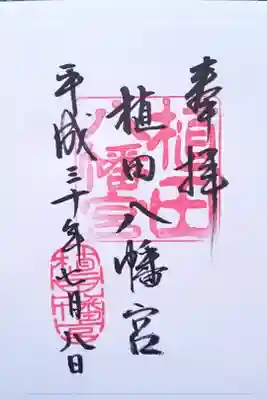 奉拝
植田八幡宮
平成三十年七月八日
植田
八幡宮